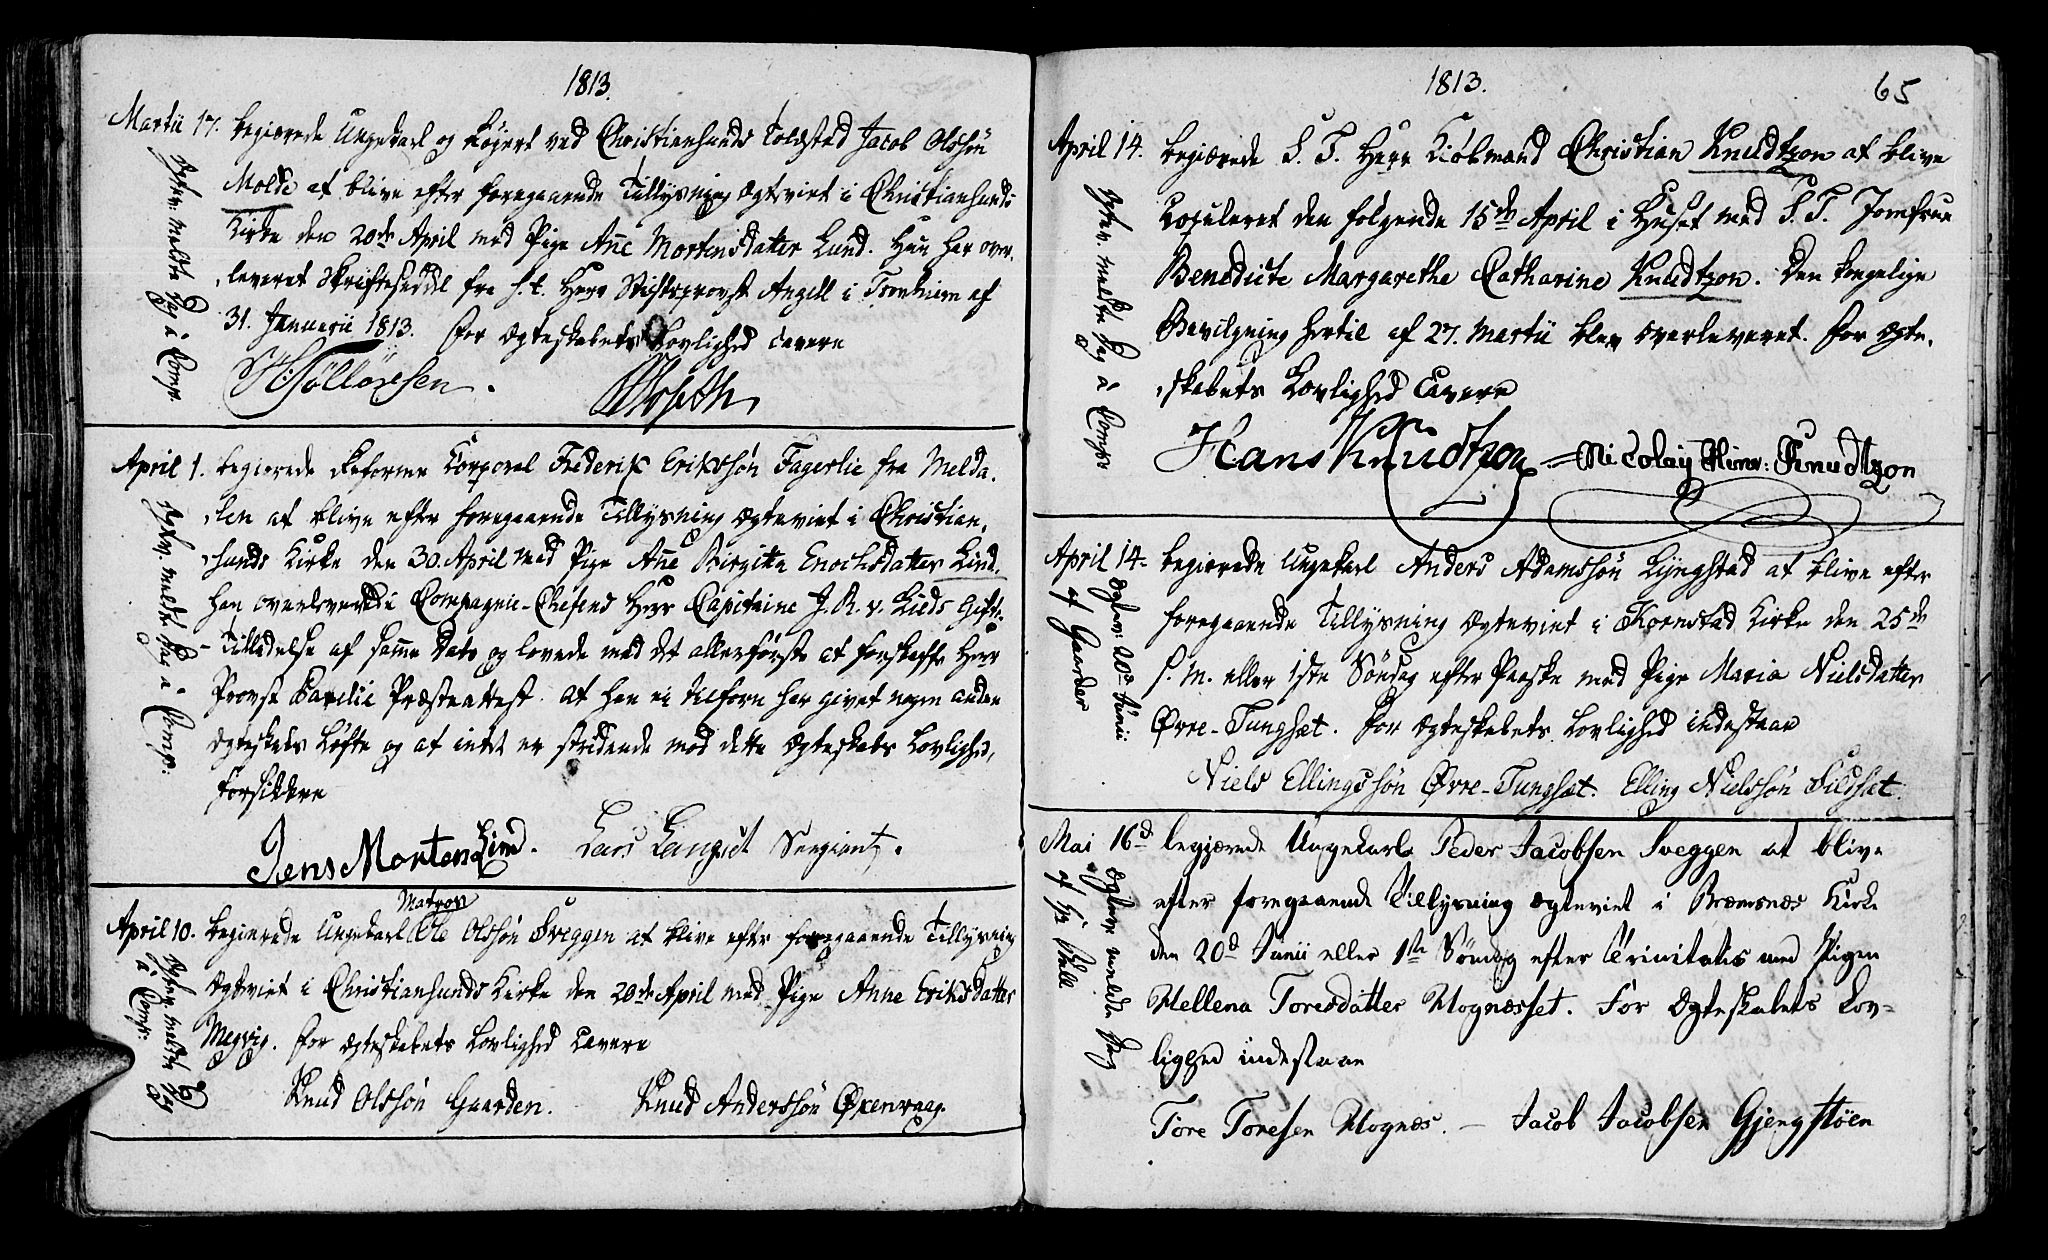 1813.
Martii 17. begierede Ungekarl og Røjert ved Christiansunds Toldsted Jacob Olssøn
Molde at blive efter foregaaende Tillysning ægteviet i Christiansunds
Kirke den 20de April med Pige Ane Mortensdatter Lund. Hun har over-
leveret Skrifteseddel fra S. T. Herr Stiftsprovst Angell i Tronhiem af
31. Januarii 1813. For Ægteskabets Lovlighed cavere
April 1. begierede Corporal Frederik Erikssøn Fagerlie fra Melda-
len at blive efter foregaaende Tillysning ægteviet i Christian-
sunds Kirke den 30. April med Pige Ane Birgitta Enochsdatter Lind.
Han overleverede Compagnie-Chefens Herr Capitaine J. R. v. Lieds Gifte-
Tilladelse af samme Dato og lovede med det allerførste at forskaffe Herr
Provst Præsteattest at han ei tilforn har givet nogen anden
Ægteskabs Løfte og at intet er stridende mod dette Ægteskabs Lovlighed,
forsikkre
Jens Morten Lind. Lars Sergiant.
Matros
April 10. begierede Ungekarl Ole Olssøn Sveggen at blive efter foregaaende Tillysning
ægteviet i Christiansunds Kirke den 20de April med Pige Anne Eriksdatter
Megvig. For Ægteskabets Lovlighed cavere
Knud Olssøn Gaarden. Knud Anderssøn Øxenvaag.
1813. 65
April 14. begierede S. T. Herr Kiøbmand Christian Knudtzon at blive
copuleret den følgende 15de April i Huset med S. T. Jomfrue
Benedicte Margarethe Catharine Knudtzon. Den kongelige
Bevilgning hertil af 27. Martii blev overleveret. For Ægte-
skabets Lovlighed cavere
Hans Knudtzon Nicolay Hinr: Knudtzon
April 14. begierede Ungekarl Anders Adamssøn Lyngstad at blive efter
foregaaende Tillysning ægteviet i Kornstad Kirke den 25de
s. M. eller 1ste Søndag efter Paaske med Pige Maria Nielsdatter
Øvre-Tungsæt. For Ægteskabets Lovlighed indestaar
Niels Ellingssøn Øvre-Tungsæt. Elling Nielssøn Sildsæt.
Mai 16d begjærede Ungekarl Peder Jacobsen Sveggen at blive
efter foregaaende Tillysning ægteviet i Bremsnæs Kirke
den 20d Junii eller 1ste Søndag efter Trinitatis med Pigen
Hellena Toresdatter Hognæsset. For Ægteskabets Lov-
lighed indestaar
Tore Toresen Hognæs. – Jacob Jacobsen Gjengstøen